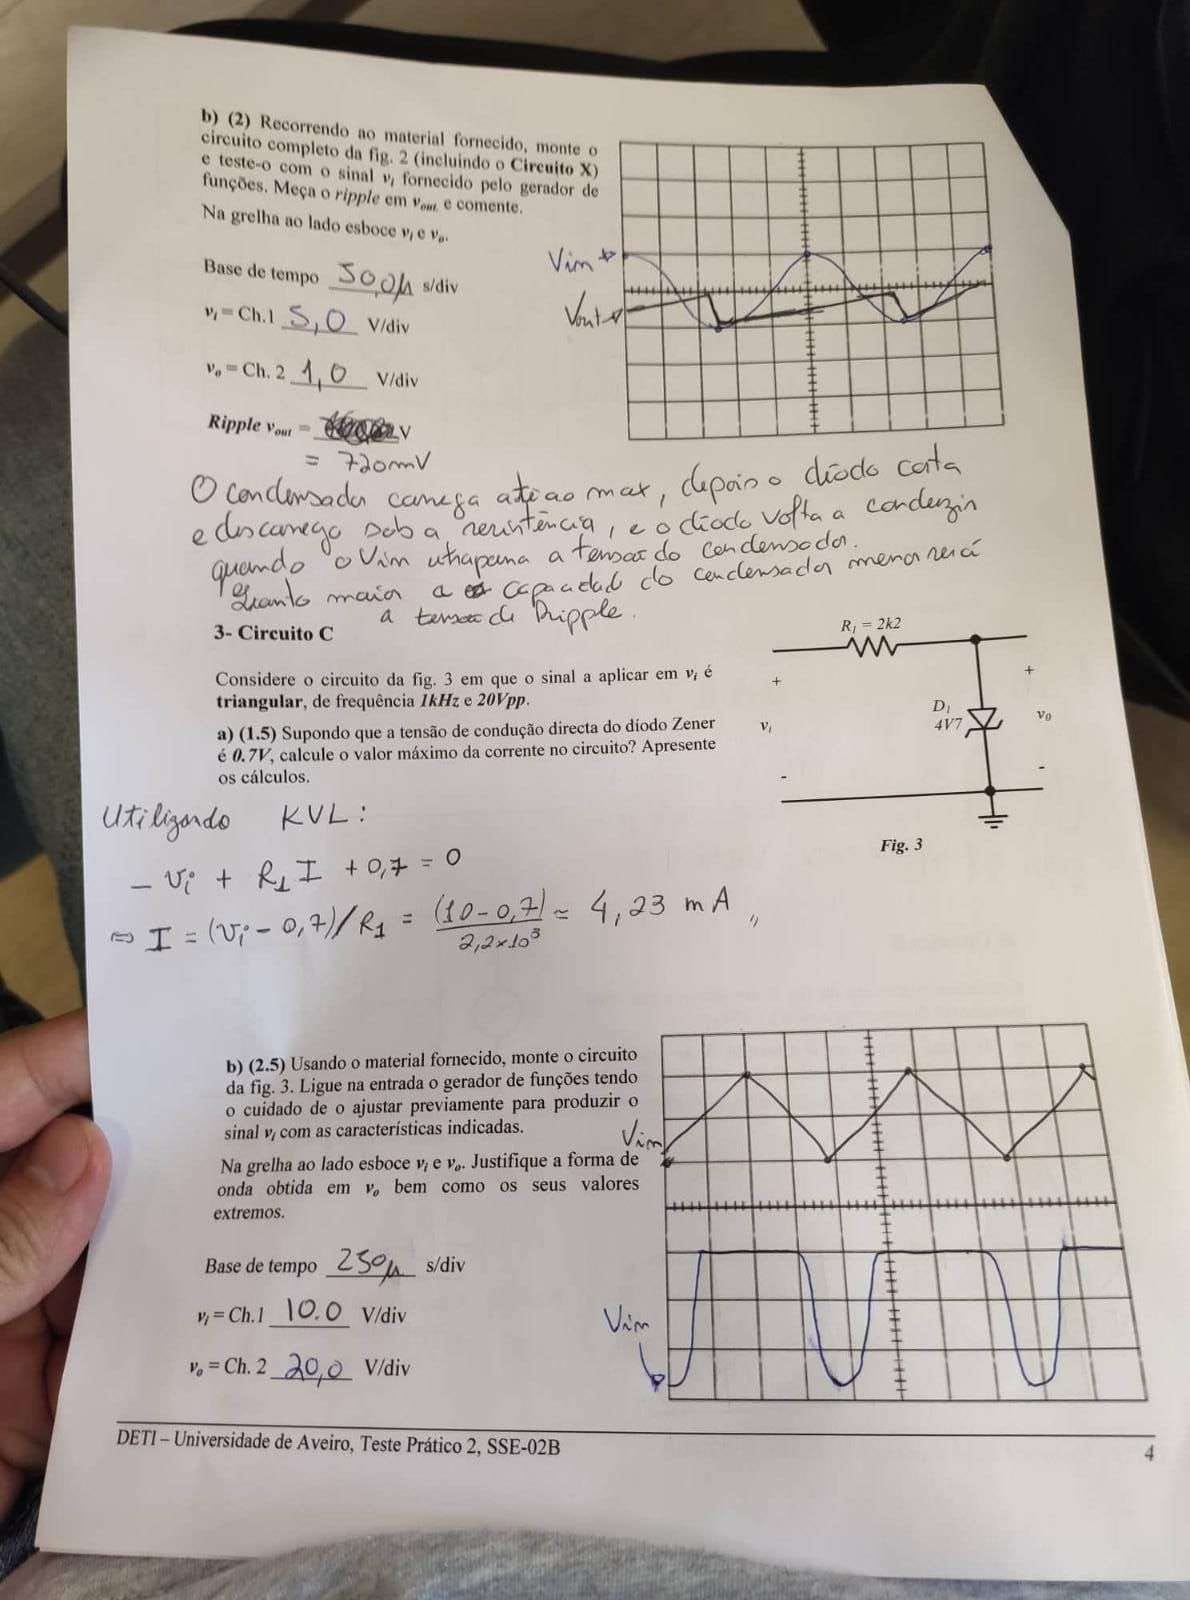 b) (2) Recorrendo ao material fornecido, monte o
circuito completo da fig. 2 (incluindo o Circuito X)
e teste-o com o sinal vi fornecido pelo gerador de
funções. Meça o ripple em vout. e comente.
Na grelha ao lado esboce vi e vo.
Vim
Base de tempo 500μ s/div
Vout
vi = Ch.1 5,0 V/div
vo = Ch. 2 1,0 V/div
Ripple vout = V
= 720mV
O condensador carrega até ao max, depois o díodo corta
e descarrega sob a resistência, e o díodo volta a conduzir
quando o Vim ultrapassa a tensão do condensador.
Quanto maior a capacidade do condensador menor será
a tensão de Ripple.
3- Circuito C
R1 = 2k2
Considere o circuito da fig. 3 em que o sinal a aplicar em vi é
triangular, de frequência 1kHz e 20Vpp.
a) (1.5) Supondo que a tensão de condução directa do díodo Zener
é 0.7V, calcule o valor máximo da corrente no circuito? Apresente
os cálculos.
+
+
D1
4V7
vi
v0
-
-
Fig. 3
Utilizando KVL:
- Vi + R1 I + 0,7 = 0
⇔ I = (Vi - 0,7)/R1 = (10-0,7)/2,2×10³ ≃ 4,23 mA //
b) (2.5) Usando o material fornecido, monte o circuito
da fig. 3. Ligue na entrada o gerador de funções tendo
o cuidado de o ajustar previamente para produzir o
sinal vi com as características indicadas.
Vim
Na grelha ao lado esboce vi e vo. Justifique a forma de
onda obtida em vo bem como os seus valores
extremos.
Base de tempo 250μ s/div
vi = Ch.1 10.0 V/div
Vim
vo = Ch. 2 20,0 V/div
DETI – Universidade de Aveiro, Teste Prático 2, SSE-02B
4